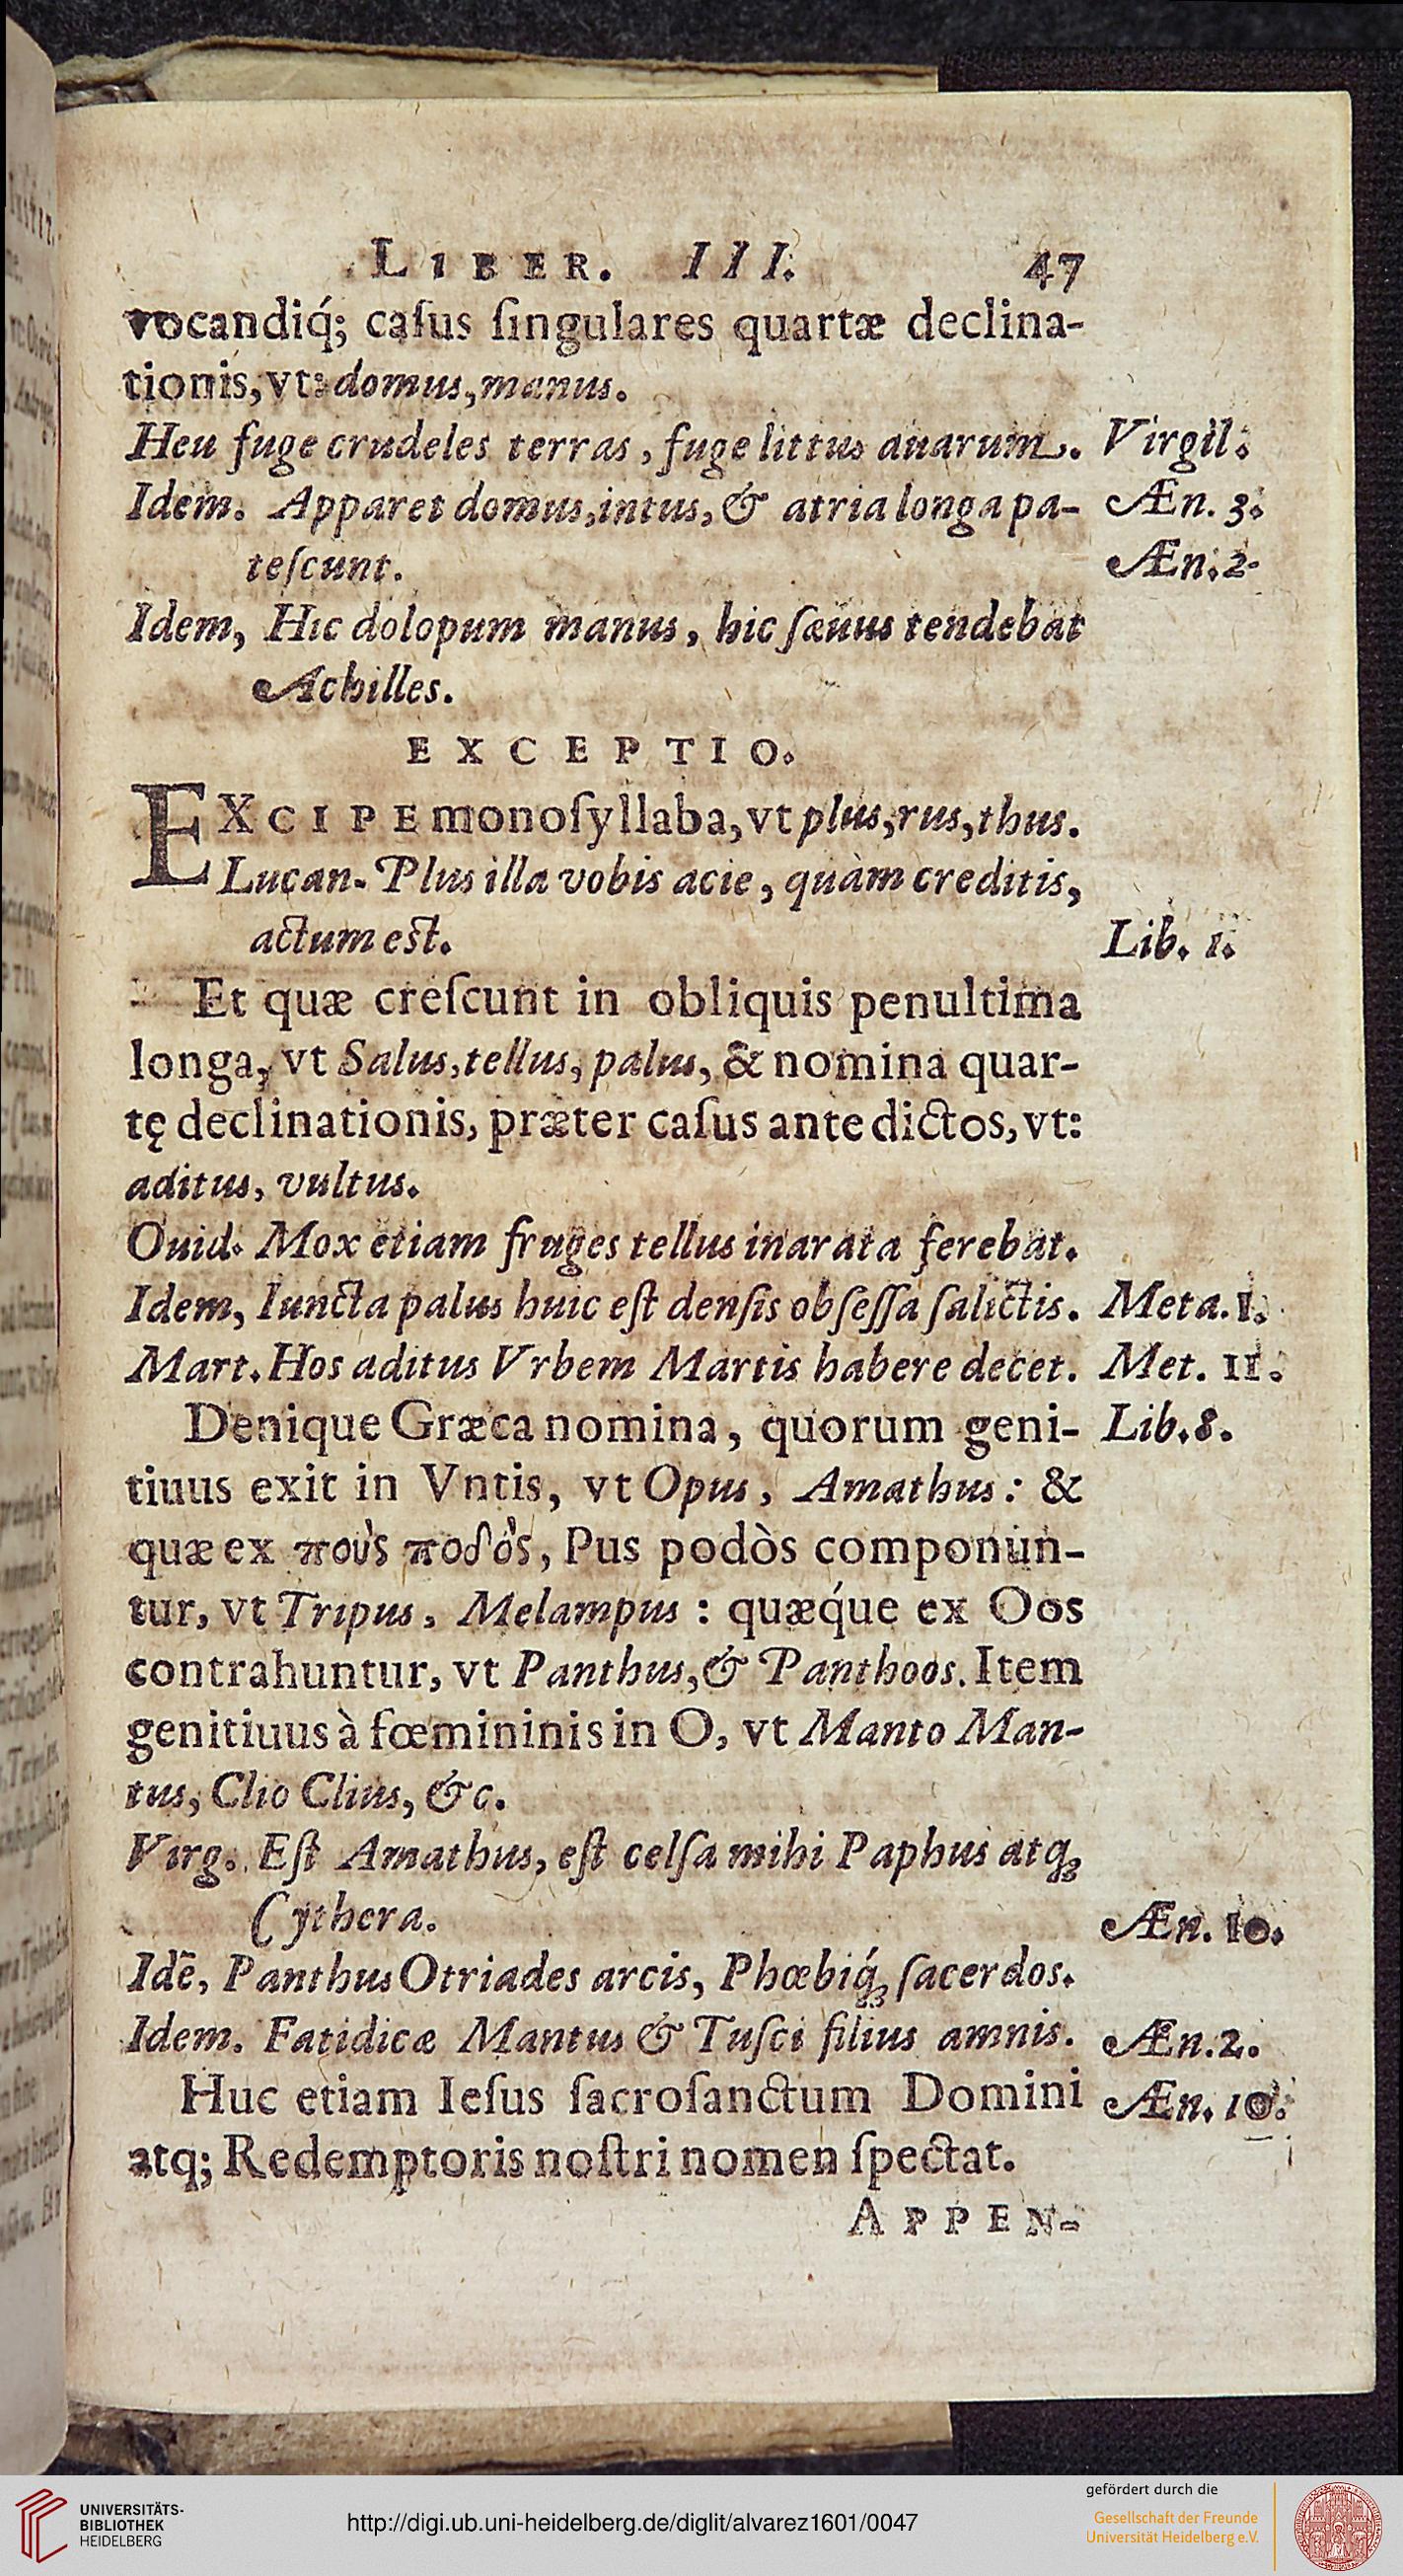 LIBER. III. 47
vocandiq́; caſus ſingulares quartæ declina-
tionis, vt: domus, manus.
Heu fuge crudeles terras, fuge littus auarum. Virgil.
Idem. Apparet domus, intus, & atria longa pa- Æn. 3.
teſcunt. Æn. 2.
Idem, Hic dolopum manus, hic ſæuus tendebat
Achilles.
EXCEPTIO.
EXCIPE monoſyllaba, vt plus, rus, thus.
Lucan. Plus illa vobis acie, quàm creditis,
actum est. Lib. 1.
Et quæ creſcunt in obliquis penultima
longa, vt Salus, tellus, palus, & nomina quar-
tę declinationis, præter caſus ante dictos, vt:
aditus, vultus.
Ouid. Mox etiam fruges tellus inarata ferebat.
Idem, Iuncta palus huic eſt denſis obſeſſa ſalictis. Meta. 1.
Mart. Hos aditus Vrbem Martis habere decet. Met. 11.
Denique Græca nomina, quorum geni- Lib. 8.
tiuus exit in Vntis, vt Opus, Amathus: &
quæ ex πουὶς ποδὸς, Pus podòs componun-
tur, vt Tripus, Melampus: quæq́ue ex Oos
contrahuntur, vt Panthus, & Panthoos. Item
genitiuus à fœmininis in O, vt Manto Man-
tus, Clio Clius, &c.
Virg. Eſt Amathus, eſt celſa mihi Paphus atq;
Cythera. Æn. 10.
Idẽ, Panthus Otriades arcis, Phœbiq́; ſacerdos.
Idem. Fatidicæ Mantus & Tuſci filius amnis. Æn. 2.
Huc etiam Ieſus ſacroſanctum Domini Æn. 10.
atq; Redemptoris noſtri nomen ſpectat.
APPEN-
UNIVERSITÄTS-
BIBLIOTHEK
HEIDELBERG
http://digi.ub.uni-heidelberg.de/diglit/alvarez1601/0047
gefördert durch die
Gesellschaft der Freunde
Universität Heidelberg e.V.